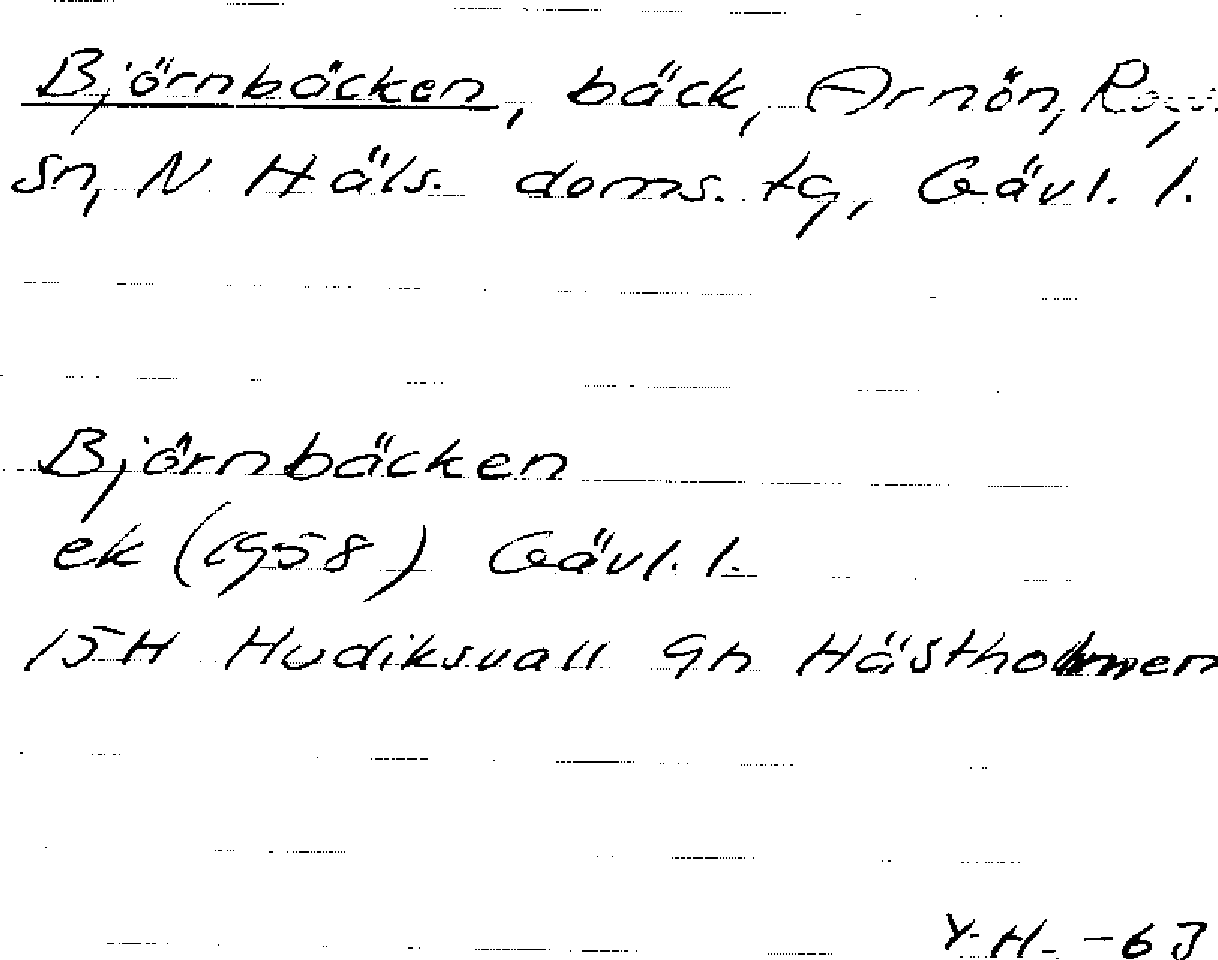 Björnbäcken, bäck, Arnön,
sn, N Häls. doms. tg, Gävl. l.
Björnbäcken
ek (1958) Gävl. l.
15H Hudiksvall 9h Hästholmen
Y.H. -63